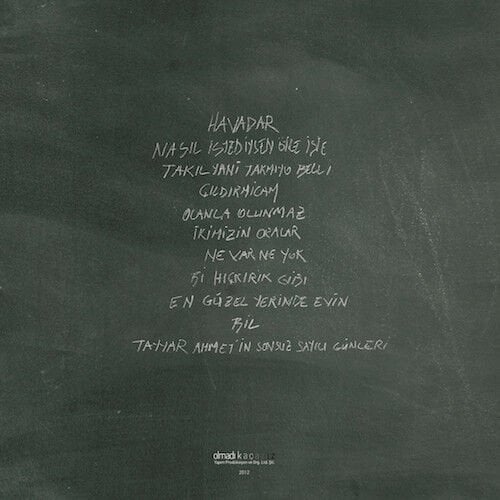 HAVADAR
NASIL İSTEDİYSEN ÖYLE İŞTE
TAKIL YANİ TAKMIYO BELLİ
ÇILDIRMICAM
OLANLA OLUNMAZ
İKİMİZİN ORALAR
NE VAR NE YOK
Bİ HIÇKIRIK GİBİ
EN GÜZEL YERİNDE EVİN
BİL
TAHAR AHMET'İN SONSUZ SAYILI GÜNLERİ
olmadı kaçarız
Yapım Prodüksiyon ve Org. Ltd. Şti.
2012